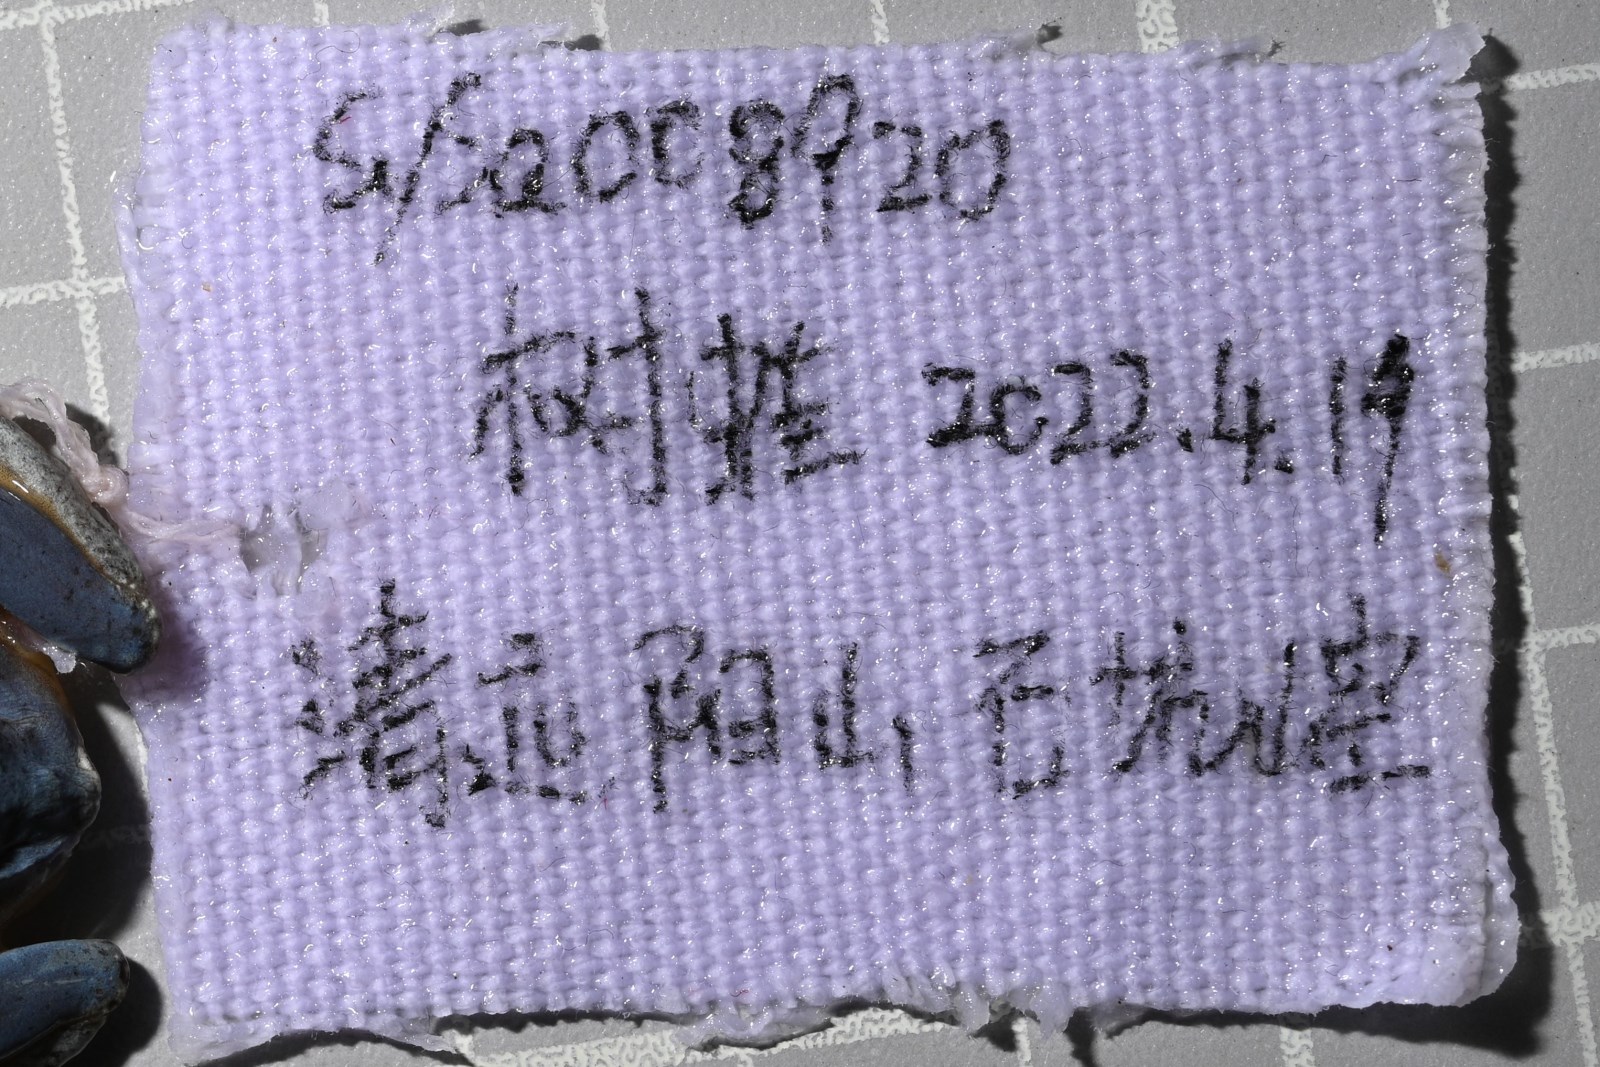 SYS2008920
树蛙 2022.4.19
清远 阳山, 石坑崆